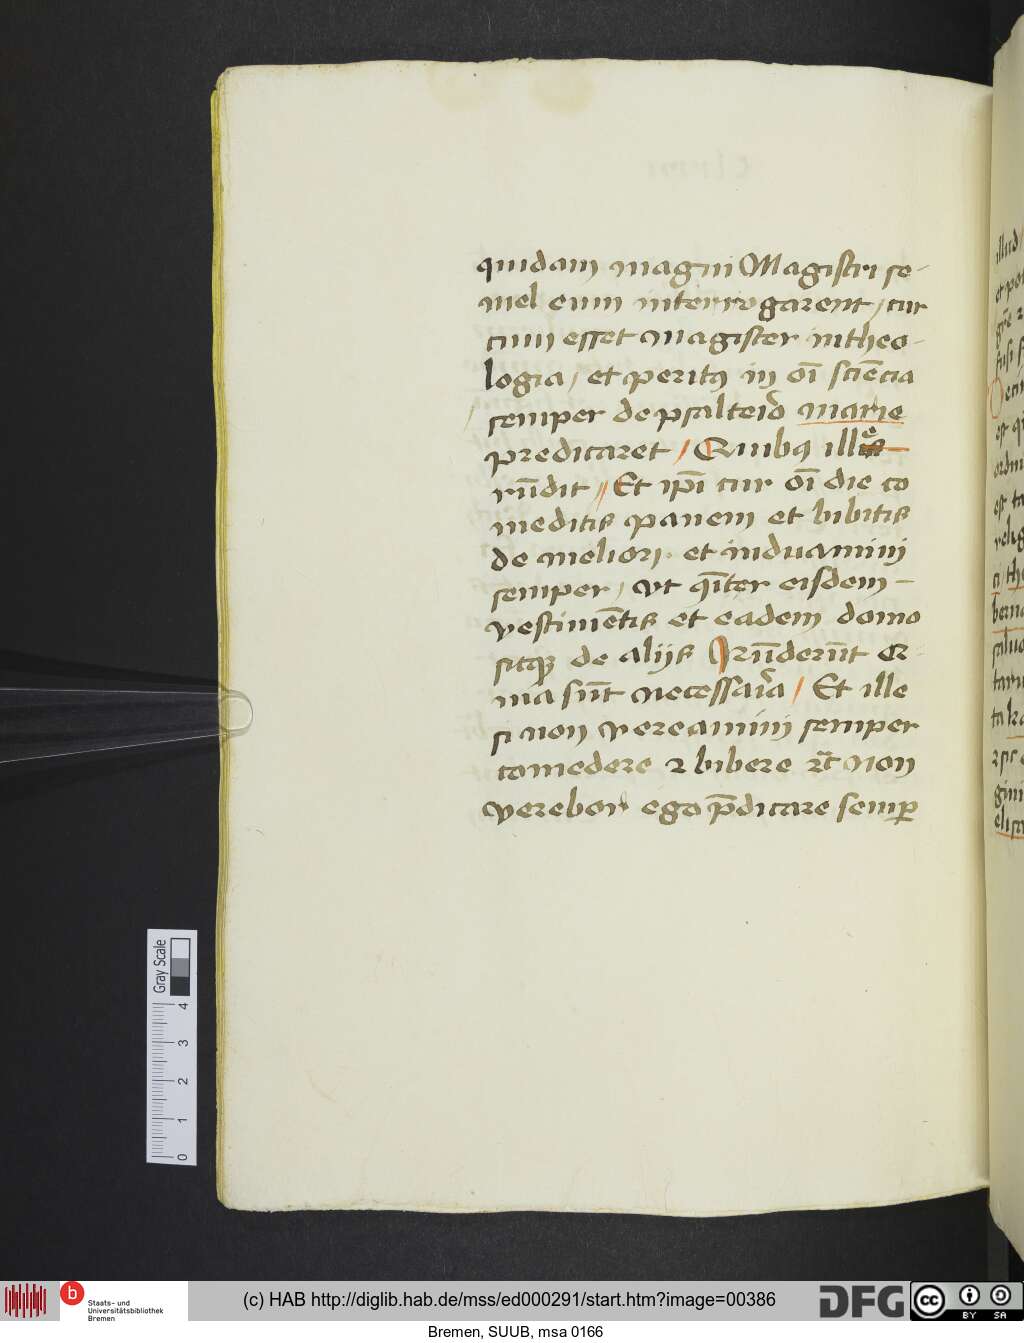 quidam magni Magistri se-
mel eum interrogarent / cur
cum esset magister in theo-
logia / et peritꝯ in oī sciēcia
semper de psalterio marie
predicaret / Quibꝯ ille
rn̄dit // Et ip̄i cur oī die co
meditis panem et bibitis
de meliori . et induamini
semper / vt q̄nter eisdem -
vestimētis et eadem domo
sitqꝫ de alijs Rn̄derūt
ma sūt necessaria / Et ille
si non vereamini semper
comedere ⁊ bibere ⁊c̄ non
verebor ego p̄dicare semꝑ
Gray Scale
4
3
2
1
0
b Staats- und
Universitätsbibliothek
Bremen
(c) HAB http://diglib.hab.de/mss/ed000291/start.htm?image=00386
DFG
cc
BY SA
Bremen, SUUB, msa 0166